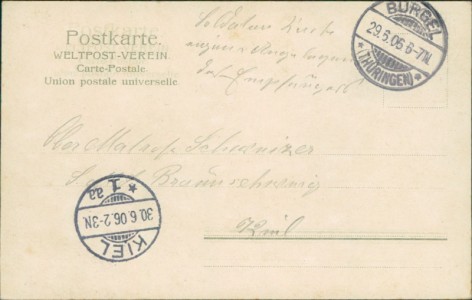 Postkarte.
WELTPOST-VEREIN.
Carte-Postale
Union postale universelle.
BÜRGEL
29.6.06 6-7N.
*(THÜRINGEN)*
Soldaten Karte
eigene Angelegenheit
des Empfängers
Ober Matrose
S. M. S. Braunschweig
Kiel
KIEL
30.6.06.2-3N
* 1 aa